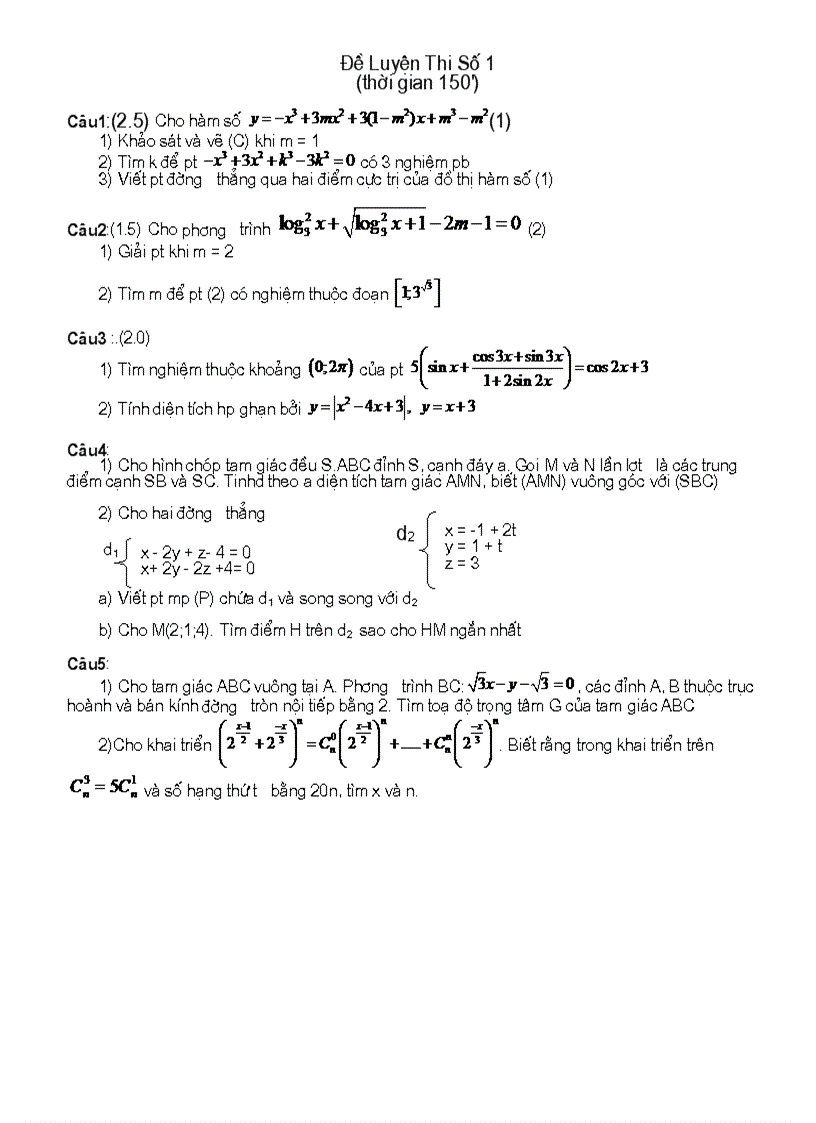 Đề Luyện Thi Số 1
(thời gian 150')
Câu1:(2.5) Cho hàm số y = −x³ + 3mx² + 3(1 − m²)x + m³ − m² (1)
1) Khảo sát và vẽ (C) khi m = 1
2) Tìm k để pt −x³ + 3x² + k³ − 3k² = 0 có 3 nghiệm pb
3) Viết pt đờng thẳng qua hai điểm cực trị của đồ thị hàm số (1)
Câu2:(1.5) Cho phơng trình log₃² x + √(log₃² x + 1) − 2m − 1 = 0 (2)
1) Giải pt khi m = 2
2) Tìm m để pt (2) có nghiệm thuộc đoạn [1;3^√3]
Câu3 :.(2.0)
1) Tìm nghiệm thuộc khoảng (0;2π) của pt 5(sin x + (cos 3x + sin 3x)/(1 + 2sin 2x)) = cos 2x + 3
2) Tính diện tích hp ghạn bởi y = |x² − 4x + 3|, y = x + 3
Câu4:
1) Cho hình chóp tam giác đều S.ABC đỉnh S, cạnh đáy a. Gọi M và N lần lợt là các trung
điểm cạnh SB và SC. Tinhd theo a diện tích tam giác AMN, biết (AMN) vuông góc với (SBC)
2) Cho hai đờng thẳng
d₁ { x - 2y + z- 4 = 0
x+ 2y - 2z +4= 0
d₂ { x = -1 + 2t
y = 1 + t
z = 3
a) Viết pt mp (P) chứa d₁ và song song với d₂
b) Cho M(2;1;4). Tìm điểm H trên d₂ sao cho HM ngắn nhất
Câu5:
1) Cho tam giác ABC vuông tại A. Phơng trình BC: √3x − y − √3 = 0 , các đỉnh A, B thuộc trục
hoành và bán kính đờng tròn nội tiếp bằng 2. Tìm toạ độ trọng tâm G của tam giác ABC
2)Cho khai triển (2^((x−1)/2) + 2^(−x/3))^n = C_n^0 (2^((x−1)/2))^n + ... + C_n^n (2^(−x/3))^n . Biết rằng trong khai triển trên
C_n^3 = 5C_n^1 và số hạng thứ t bằng 20n, tìm x và n.